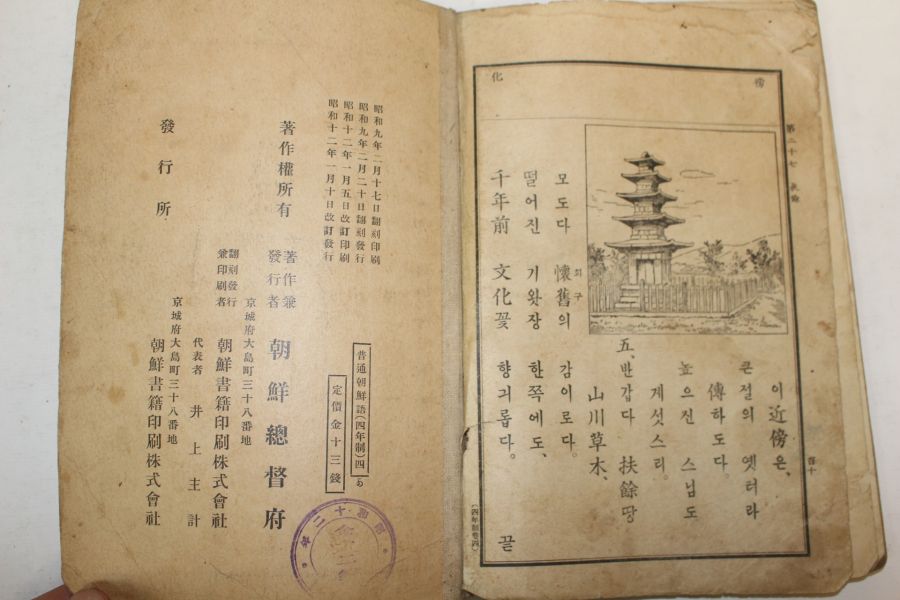 第二十七
傍
化
이 近傍은、
큰절의 옛터라
傳하도다。
높으신 스님도
게섯스리。
五、반갑다 扶餘땅
山川草木、
모도다 懷舊의 감이로다。
회구
떨어진 기왓장 한쪽에도、
千年前 文化꽃 향긔롭다。
끝
(四年制卷四)
昭和九年二月十七日飜刻印刷
昭和九年二月二十日飜刻發行
昭和十二年一月五日改訂印刷
昭和十二年一月十日改訂發行
普通朝鮮語(四年制)四
定價金十三錢
著作權所有
著作兼發行者 朝鮮總督府
京城府大島町三十八番地
飜刻發行兼印刷者 朝鮮書籍印刷株式會社
代表者 井上主計
京城府大島町三十八番地
發行所 朝鮮書籍印刷株式會社